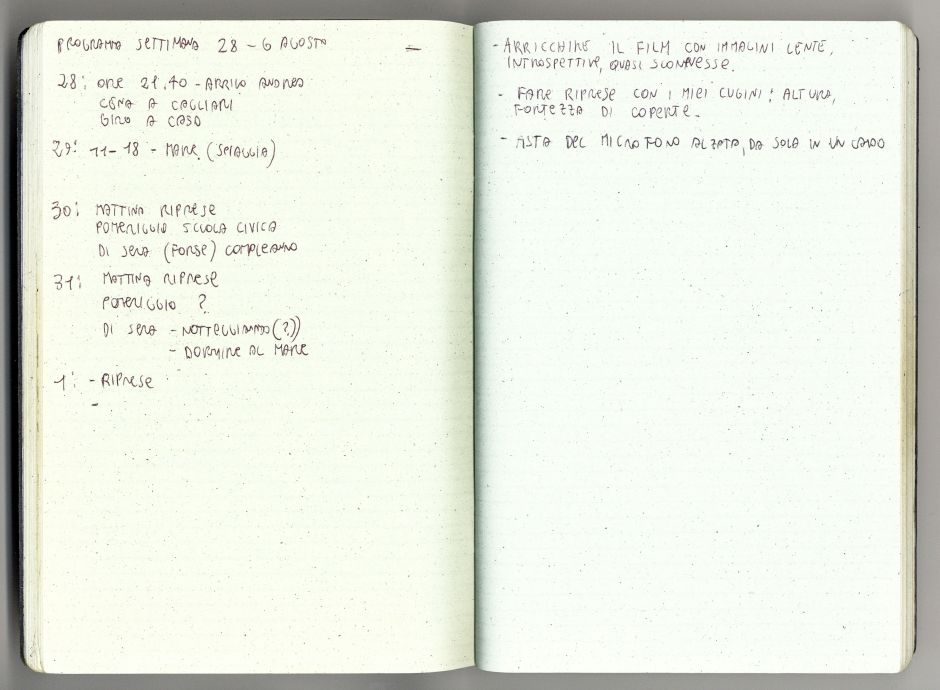 PROGRAMMA SETTIMANA 28 - 6 AGOSTO
28: ORE 21.40 - ARRIVO ANDREA
CENA A CAGLIARI
GIRO A CASO
29: 11-18 - MARE (SPIAGGIA)
30: MATTINA RIPRESE
POMERIGGIO SCUOLA CIVICA
DI SERA (FORSE) COMPLEANNO
31: MATTINA RIPRESE
POMERIGGIO ?
DI SERA - NOTTEGGIANDO (?)
- DORMIRE AL MARE
1: - RIPRESE
-
- ARRICCHIRE IL FILM CON IMMAGINI LENTE,
INTROSPETTIVE, QUASI SCONNESSE.
- FARE RIPRESE CON I MIEI CUGINI: ALTURA,
FORTEZZA DI COPERTE.
- ASTA DEL MICROFONO ALZATA, DA SOLA IN UN